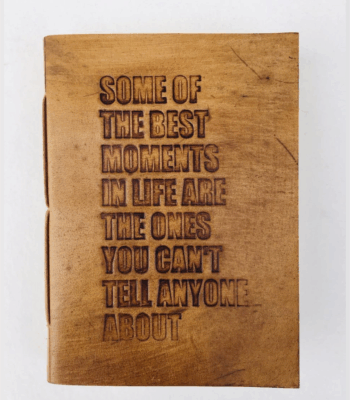 SOME OF
THE BEST
MOMENTS
IN LIFE ARE
THE ONES
YOU CAN'T
TELL ANYONE
ABOUT